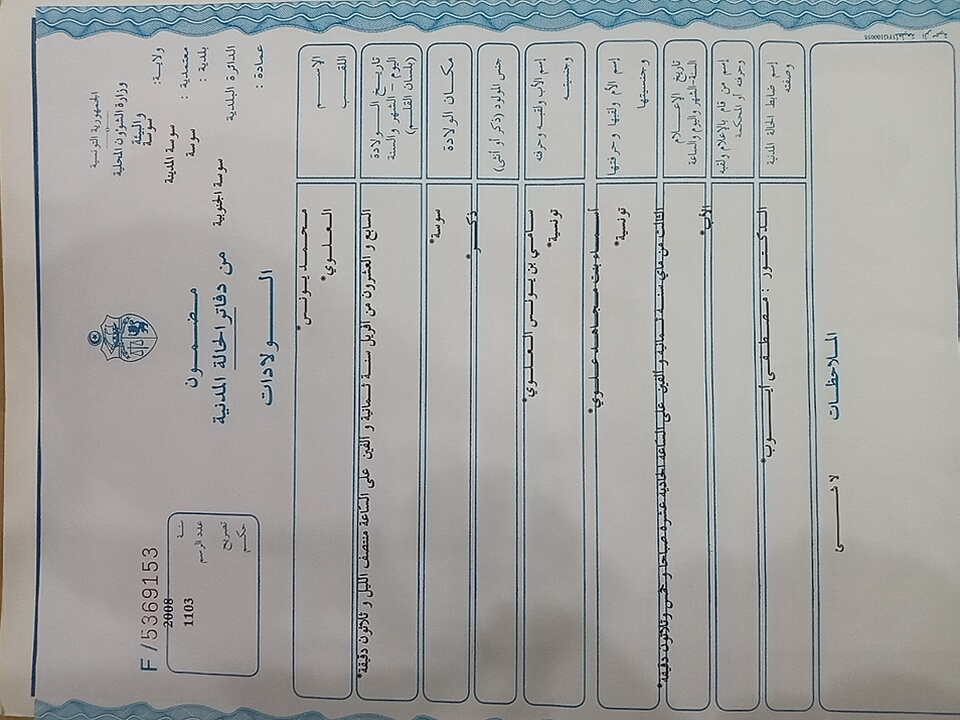 الجمهورية التونسية
وزارة الشؤون المحلية
والبيئة
ولاية: سوسة
معتمدية : سوسة المدينة
بلدية : سوسة
الدائرة البلدية سوسة الجنوبية
عمادة :
مضمون
من دفاتر الحالة المدنية
الولادات
F /5369153
سنة 2008
عدد الرسم 1103
تصريح
حكم
الاسم محمد يونس*
اللقب العلوي*
تاريخ الولادة
اليوم - الشهر والسنة
(بلسان القلم)
السابع و العشرون من أفريل سنة ثمانية و ألفين على الساعة منتصف الليل و ثلاثون دقيقة*
مكان الولادة سوسة*
جنس المولود (ذكر أو أنثى) ذكر*
إسم الأب ولقبه وحرفته سامي بن يونس العلوي*
وجنسيته تونسية*
إسم الأم ولقبها وحرفتها أسماء بنت مجاهد علوي*
وجنسيتها تونسية*
تاريخ الإعلام
السنة-الشهر واليوم والساعة
الثالث من ماي سنة ثمانية و ألفين على الساعة الحادية عشرة صباحا و خمس وثلاثون دقيقة*
إسم من قام بالإعلام ولقبه
وحرفته أو المحكمة
الأب*
إسم ضابط الحالة المدنية
وصفته
الدكتور : مصطفى أيوب*
الملاحظات
لا شيء